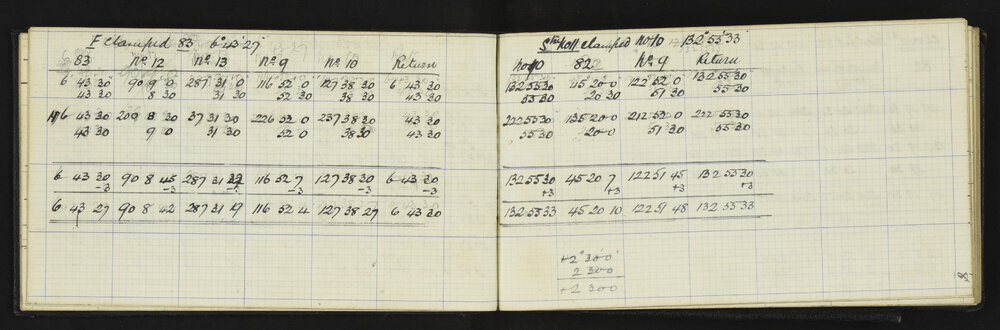 F clamped 83 6° 43' 27"
83 No. 12 No. 13 No. 9 No. 10 Return
6 43 30 90 9 0 287 31 0 116 52 0 127 38 30 6 43 30
43 30 8 30 31 30 52 30 38 30 43 30
116 43 30 209 8 30 37 31 30 226 52 0 237 38 30 43 30
43 30 9 0 31 30 52 0 38 30 43 30
6 43 30 90 8 45 287 31 22 116 52 7 127 38 30 6 43 30
-3 -3 -3 -3 -3
6 43 27 90 8 42 287 31 19 116 52 4 127 38 27 6 43 30
Stn No 11 clamped No 10 132° 55' 33"
No 10 82 No. 9 Return
132 55 30 45 20 0 122 52 0 132 55 30
55 30 20 30 51 30 55 30
222 55 30 135 20 0 212 52 0 222 55 30
55 30 20 0 51 30 55 30
132 55 30 45 20 7 122 51 45 132 55 30
+3 +3 +3 +3
132 55 33 45 20 10 122 51 48 132 55 33
+2° 30' 0"
2 30 0
+2 30 0